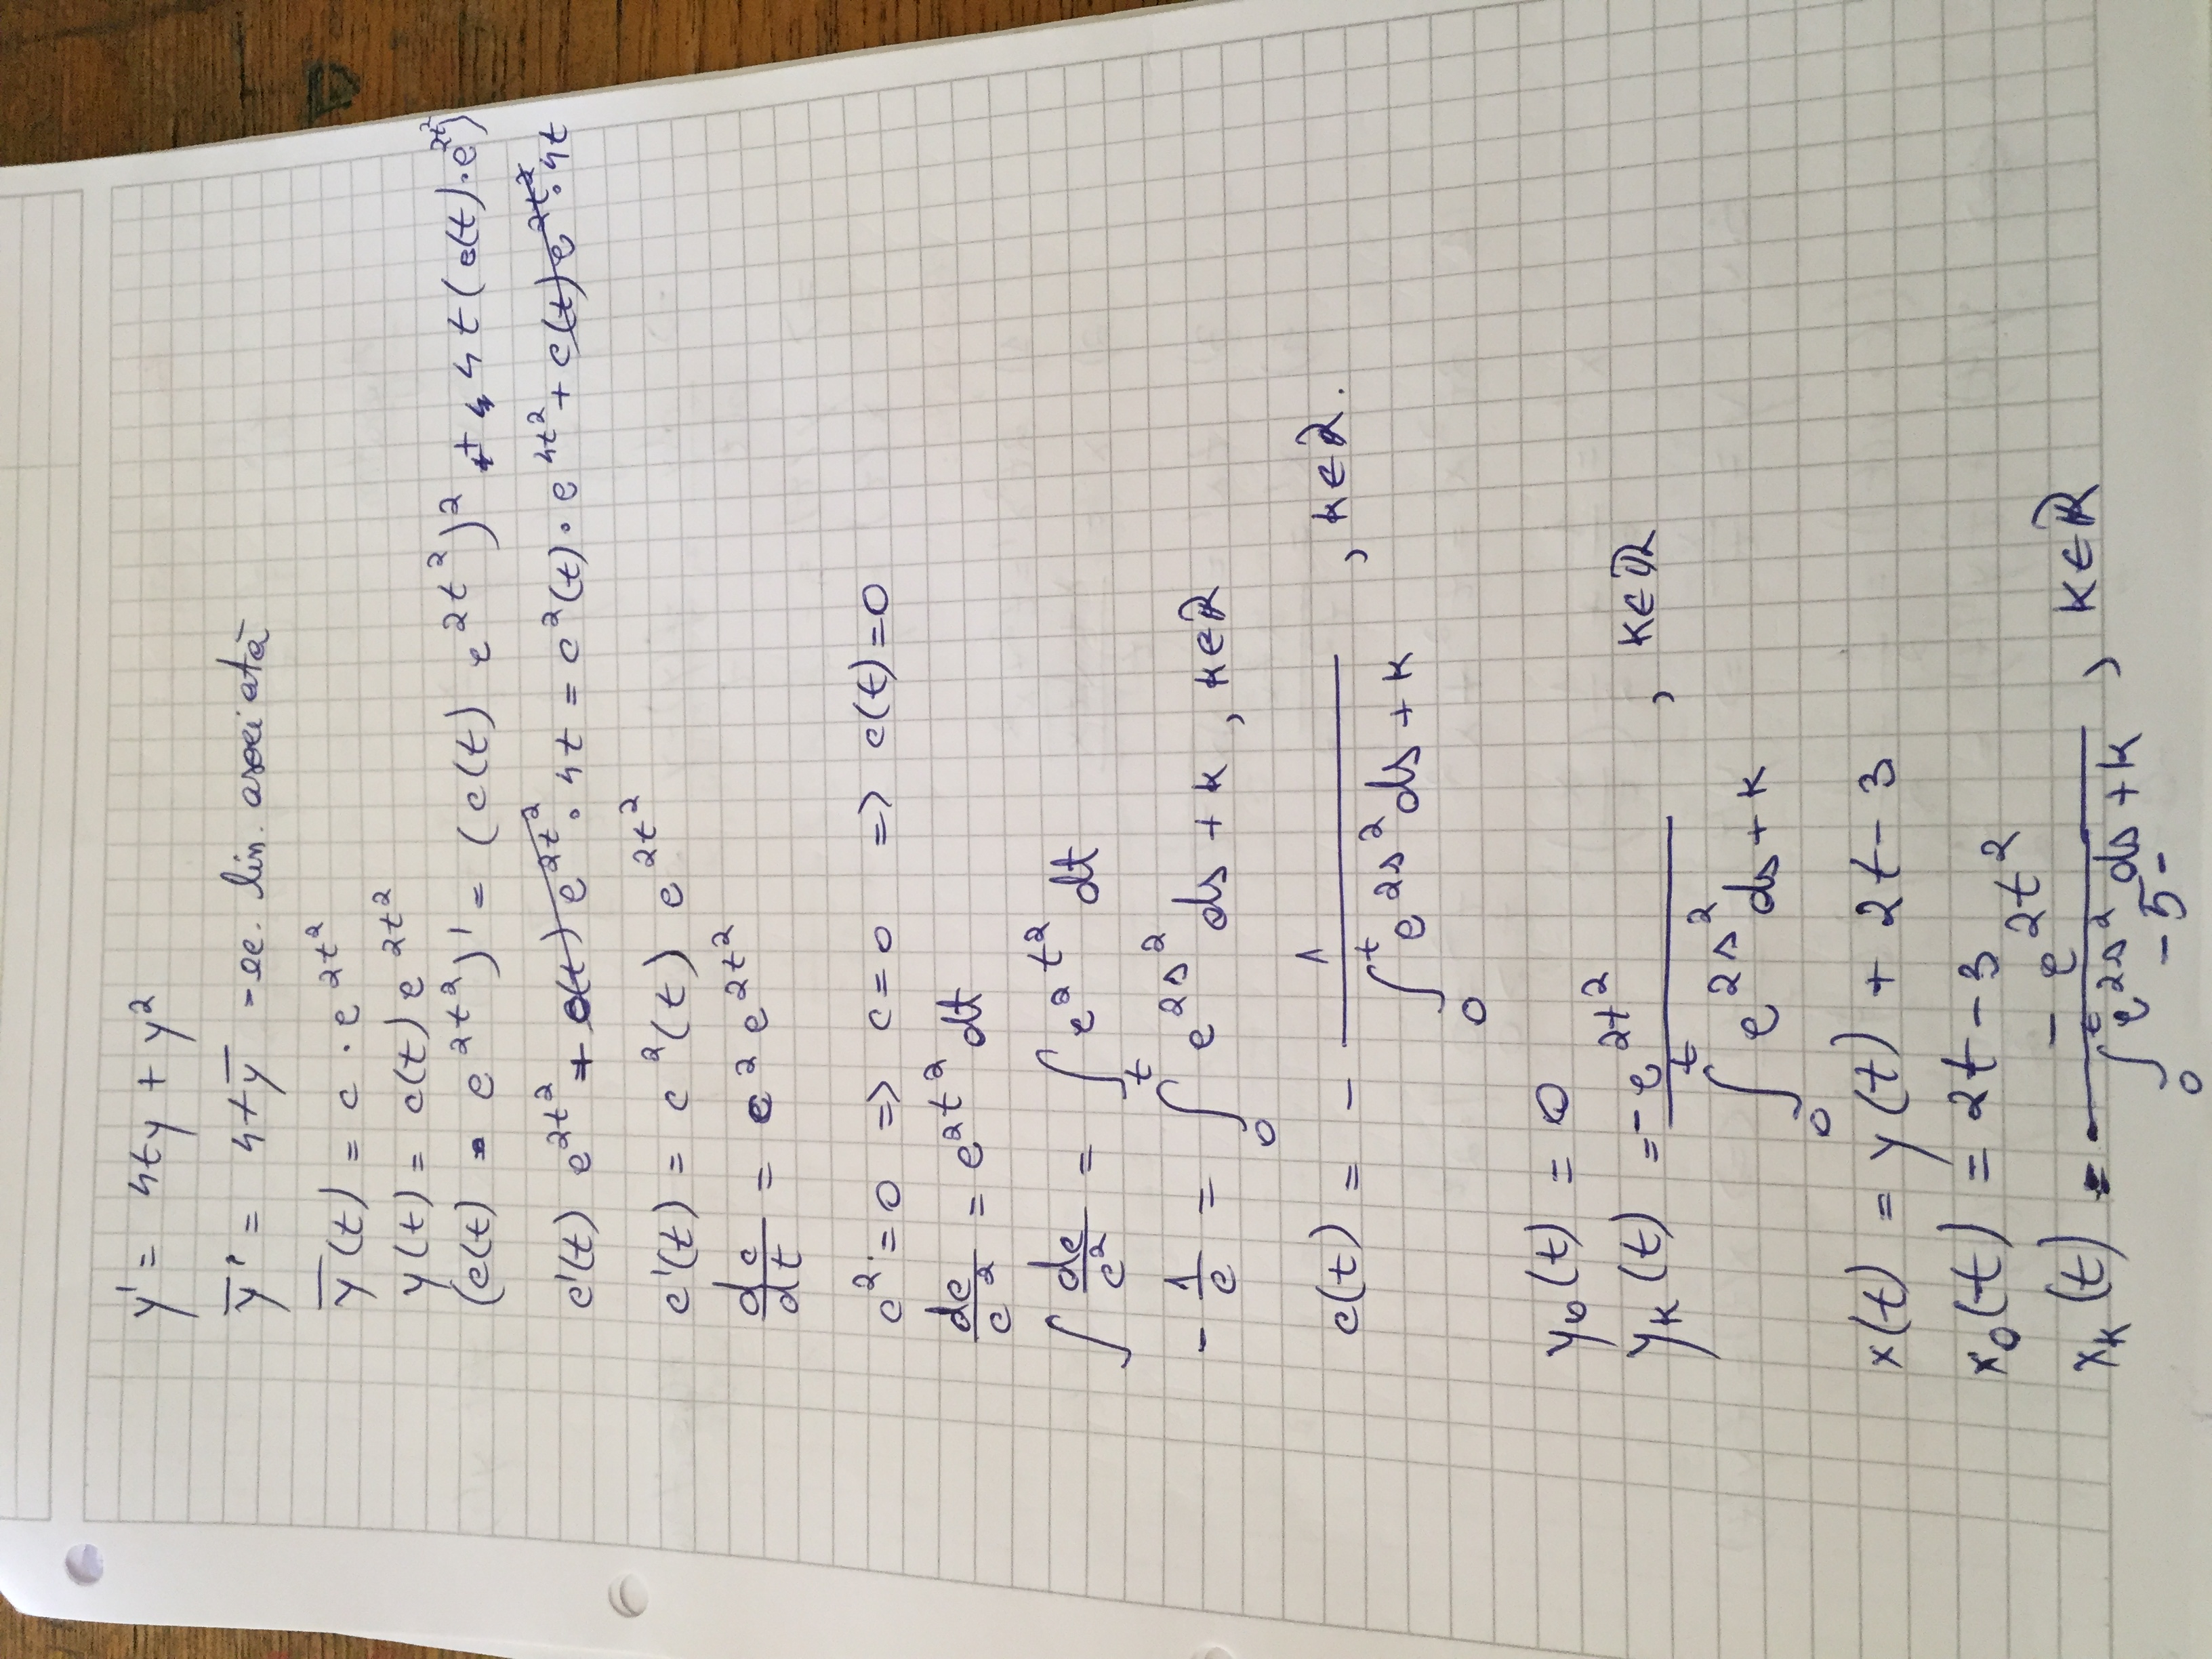 y' = 4ty + y²
ȳ' = 4tȳ - ec. lin. asociată
ȳ(t) = c · e^{2t²}
y(t) = c(t) e^{2t²}
(c(t) · e^{2t²})' = (c(t) e^{2t²})² + 4t(c(t)·e^{2t²})
c'(t) e^{2t²} + c(t) e^{2t²} · 4t = c²(t) · e^{4t²} + c(t) e^{2t²} · 4t
c'(t) = c²(t) e^{2t²}
dc/dt = c² e^{2t²}
c² = 0 => c = 0 => c(t) = 0
dc/c² = e^{2t²} dt
∫ dc/c² = ∫ e^{2t²} dt
- 1/c = ∫₀ᵗ e^{2s²} ds + k, k∈ℝ
c(t) = - 1/(∫₀ᵗ e^{2s²} ds + k), k∈ℝ.
y₀(t) = 0
y_k(t) = -e^{2t²}/(∫₀ᵗ e^{2s²} ds + k), k∈ℝ
x(t) = y(t) + 2t - 3
x₀(t) = 2t - 3
x_k(t) = -e^{2t²}/(∫₀ᵗ e^{2s²} ds + k), k∈ℝ
-5-